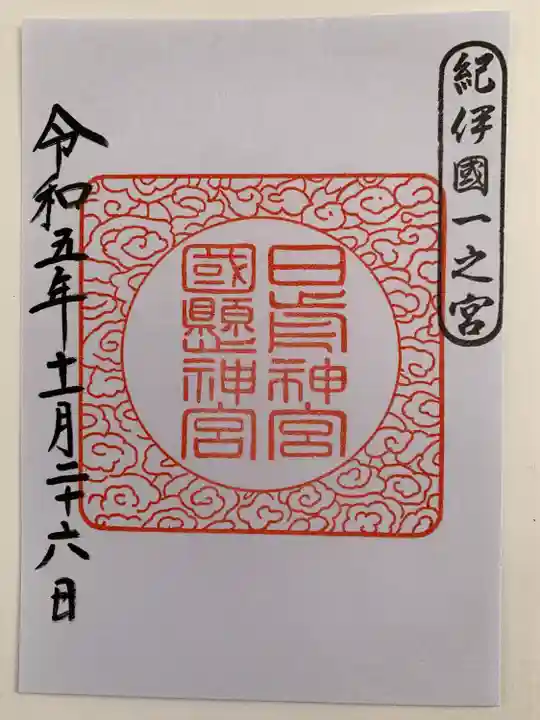 紀伊國一之宮
日前神宮
國懸神宮
令和五年十一月二十六日